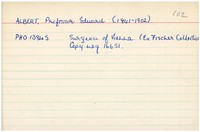 102
ALBERT, Professor Eduard (1841-1902)
PHO 13845 Surgeons of Vienna (Ex Fischer Collection
Copy neg 16631.